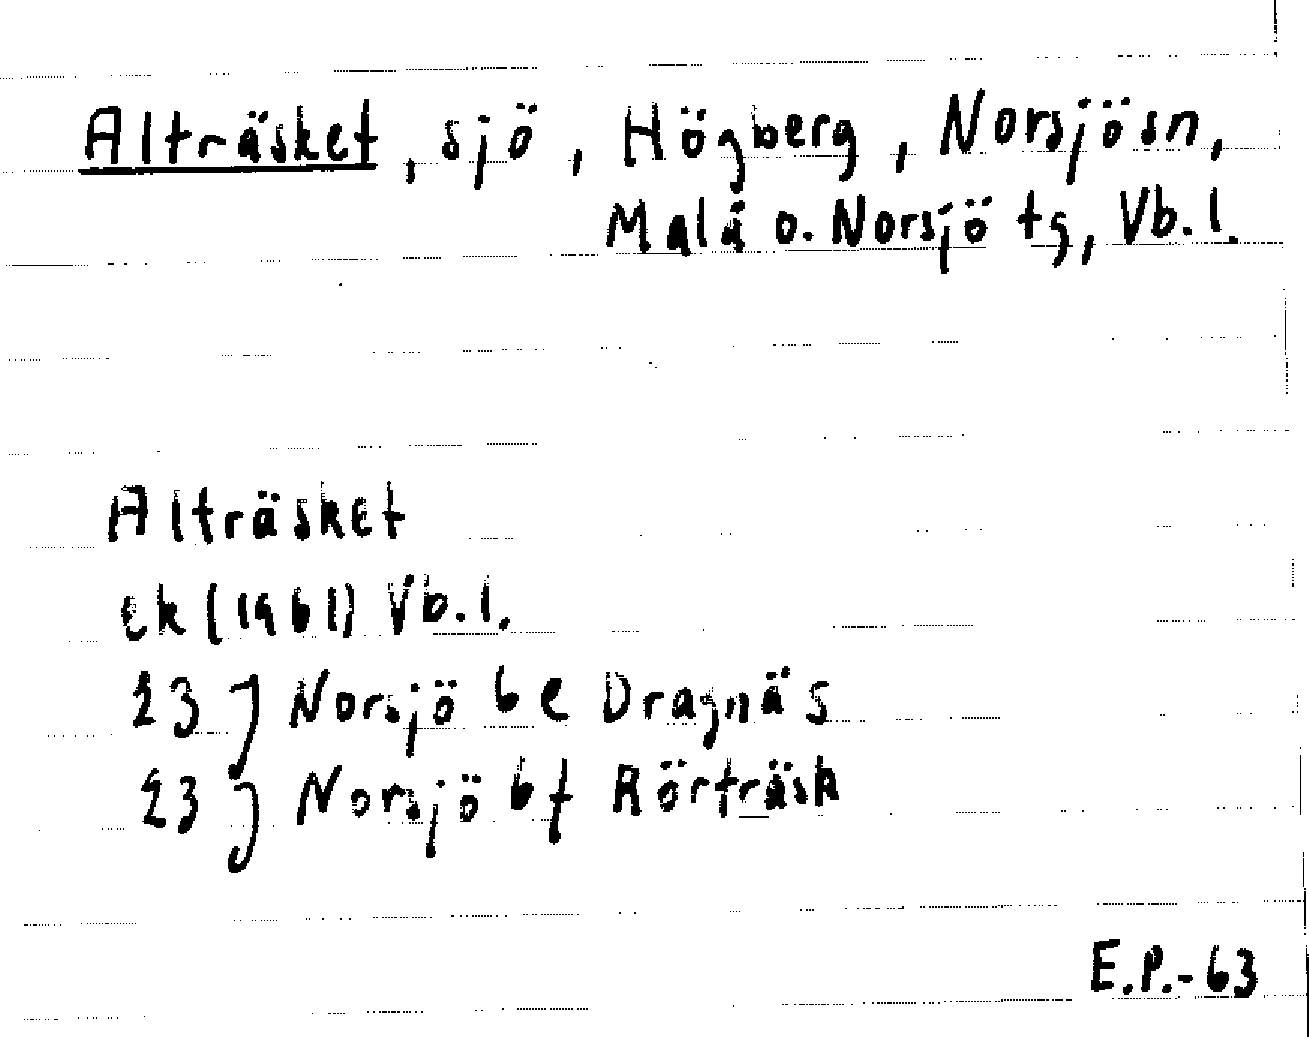 Alträsket, sjö, Högberg, Norsjösn,
Malå o. Norsjö tg, Vb.l.
Alträsket
ek (1961) Vb.l.
23 J Norsjö 6 e Dragnäs
23 J Norsjö 6 f Rörträsk
E.P.-63